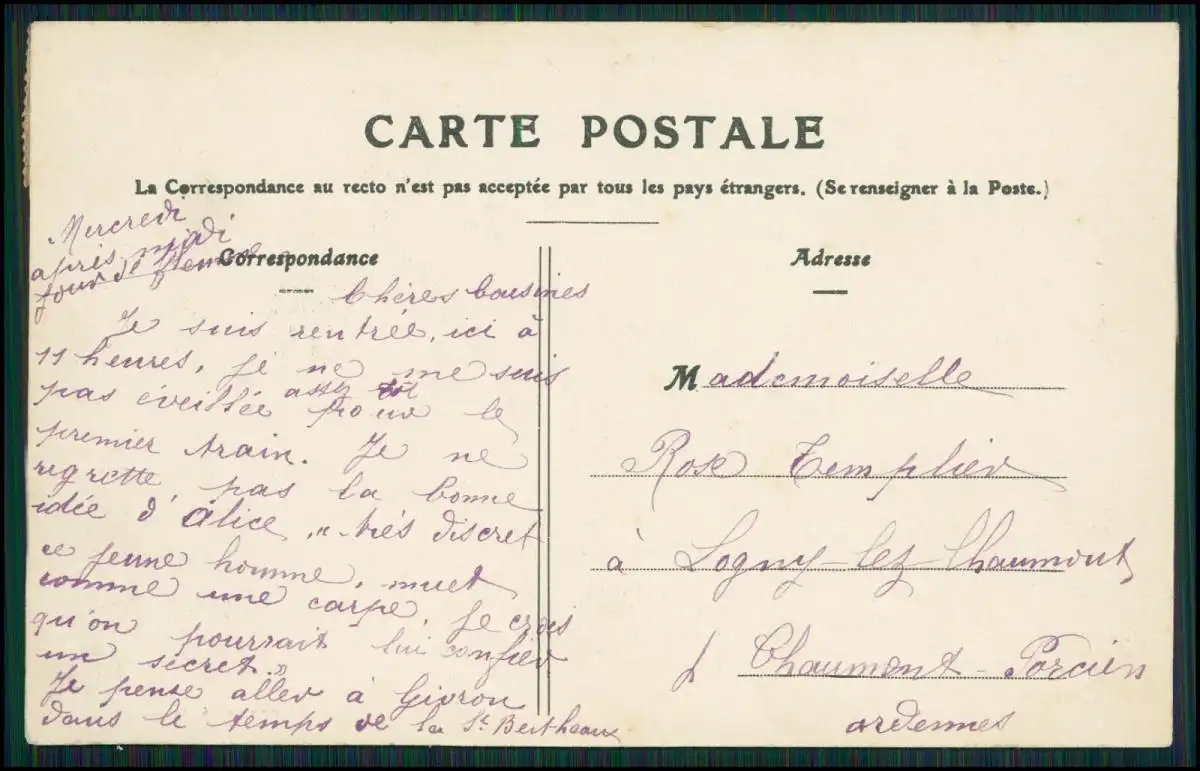 CARTE POSTALE
La Correspondance au recto n'est pas acceptée par tous les pays étrangers. (Se renseigner à la Poste.)
Mercredi
après midi
jour de
Correspondance
Chères Cousines
Je suis rentrée, ici à
11 heures, je ne me suis
pas éveillée assez tôt pour le
premier train. Je ne
regrette pas la bonne
idée d'Alice, "très discret
ce jeune homme, muet
comme une carpe, je crois
qu'on pourrait lui confier
un secret."
Je pense aller à Givron
dans le temps de la St Bertheaux
Adresse
Mademoiselle
Rose Templier
à Logny-lez-Chaumont
p Chaumont-Porcien
ardennes